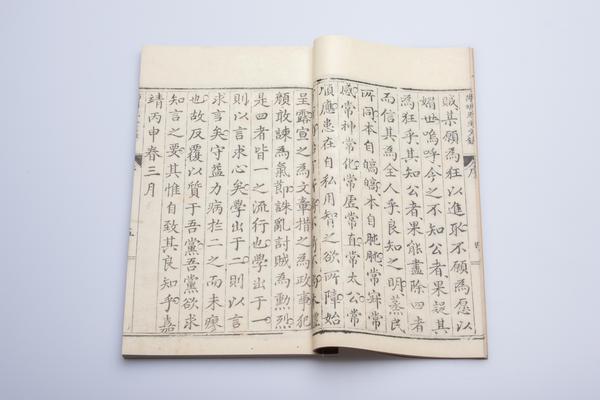 賊某願為狂以進耻不願為愿以
媚世嗚呼今之不知公者果疑其
為狂乎其知公者果能盡除四者
而信其為全人乎良知之明蒸民
所同本自皜皜本自肫肫常寂常
感常神常化常虛常直常太公常
順應患在自私用智之欲所障始
呈露宣之為文章措之為政事犯
顏敢諫為氣節誅亂討賊為勳烈
是四者皆一之流行也學出于一
則以言求心矣學出于二則以言
求言矣守益力病於二之而未瘳
也故反覆以質于吾黨吾黨欲求
知言之要其惟自致其良知乎嘉
靖丙申春三月
五